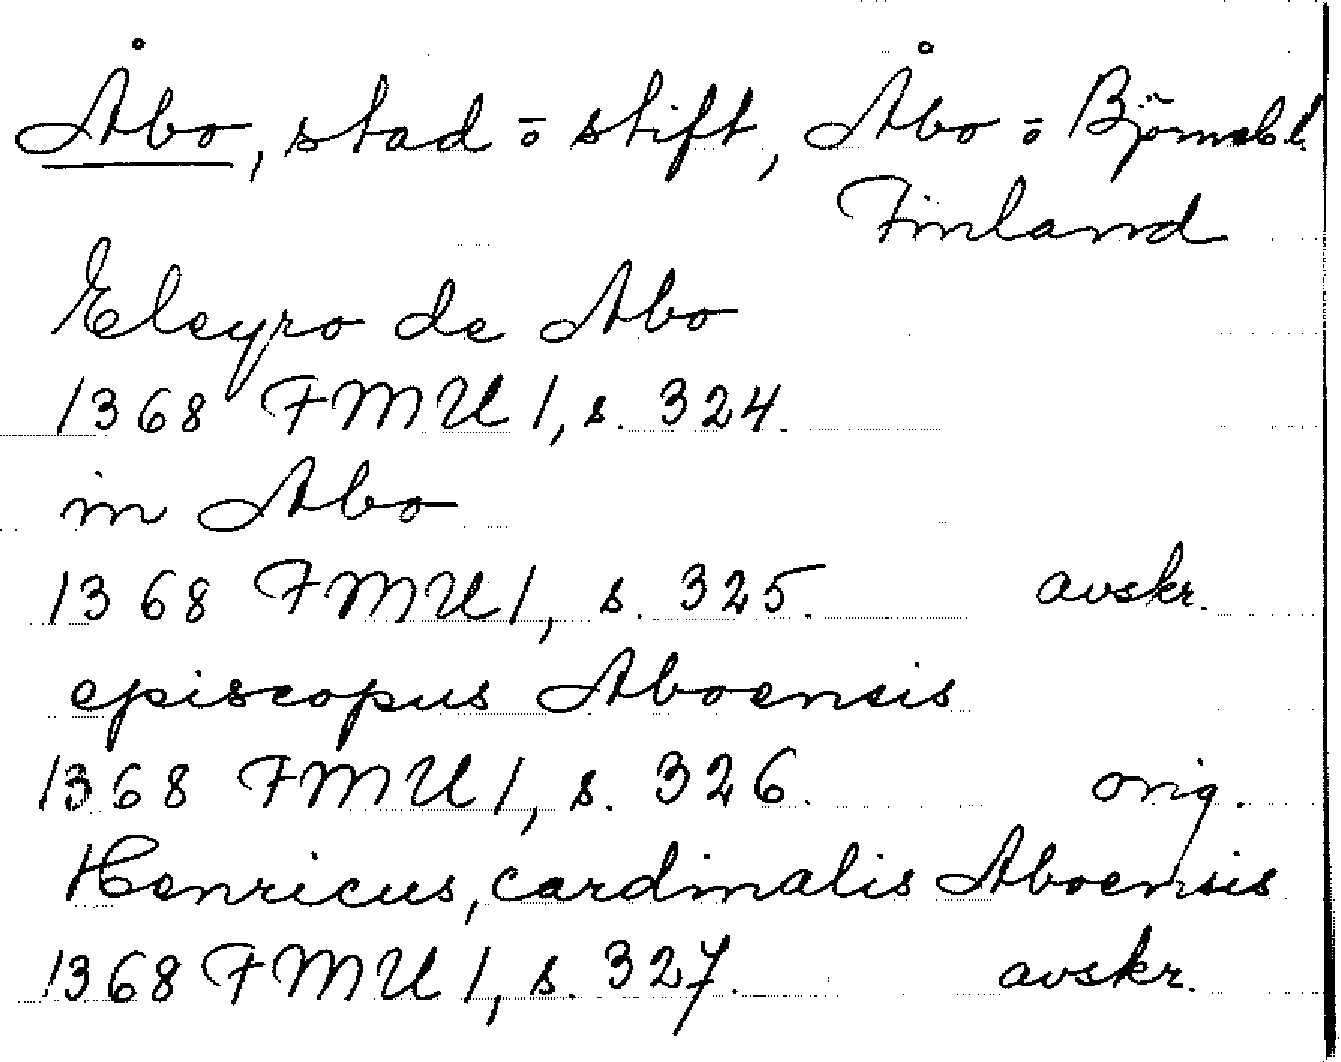 Åbo, stad o stift, Åbo o Björnebl
Finland
Eleyro de Abo
1368 FMU 1, s. 324.
in Abo
1368 FMU 1, s. 325. avskr.
episcopus Aboensis
1368 FMU 1, s. 326. orig.
Henricus, cardinalis Aboensis
1368 FMU 1, s. 327. avskr.